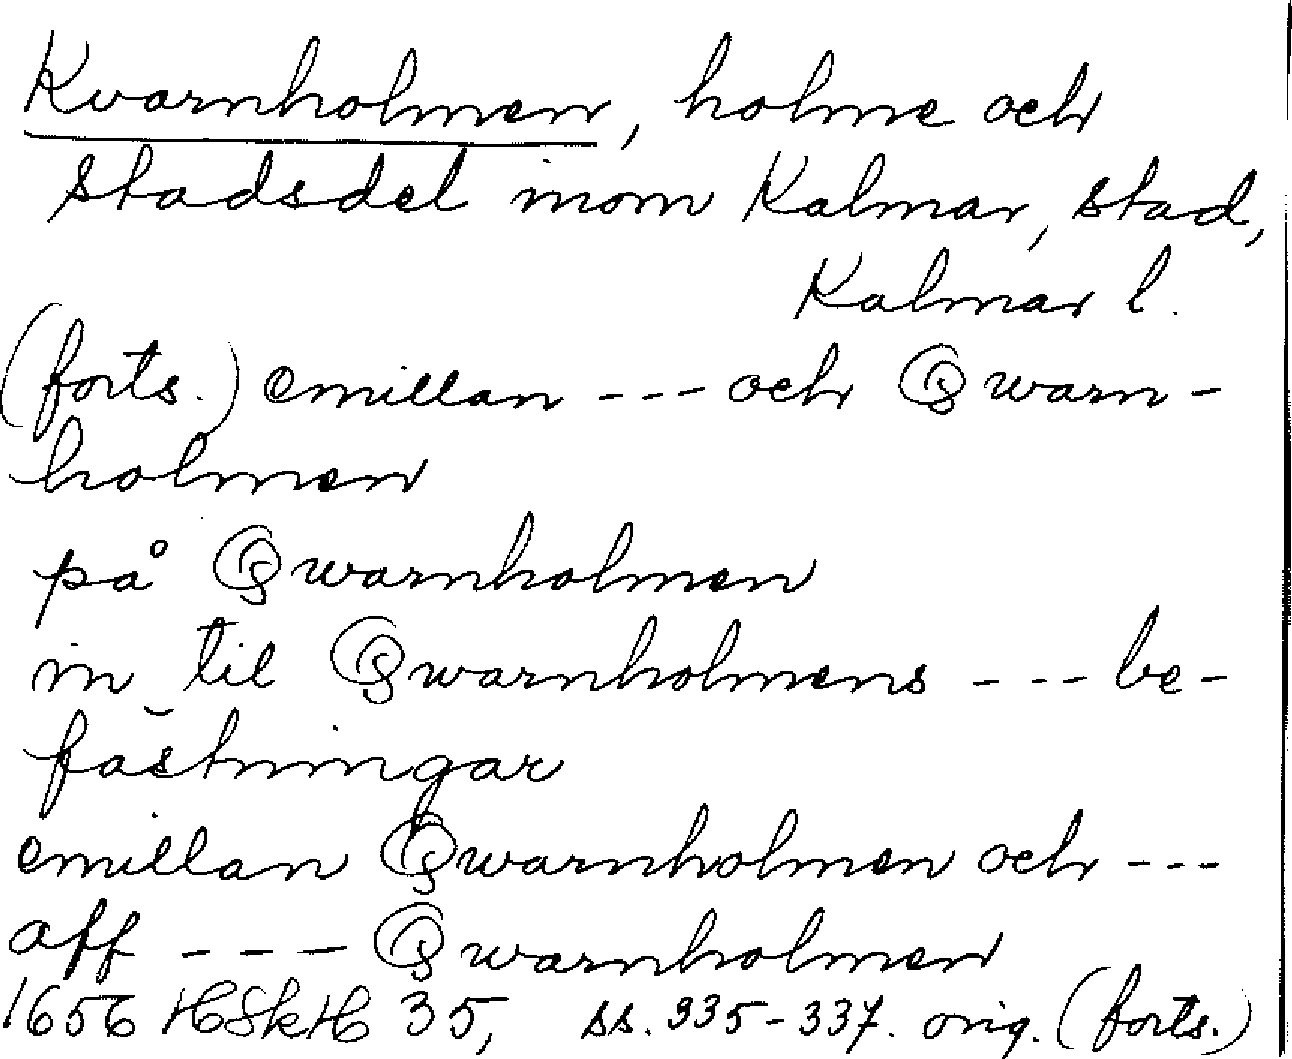 Kvarnholmen, holme och
stadsdel inom Kalmar, stad,
Kalmar l.
(forts.) emillan --- och Qwarn-
holmen
på Qwarnholmen
in til Qwarnholmens --- be-
fästningar
emillan Qwarnholmen och ---
aff --- Qwarnholmen
1656 HSkH 35, ss. 335-337. orig. (forts.)